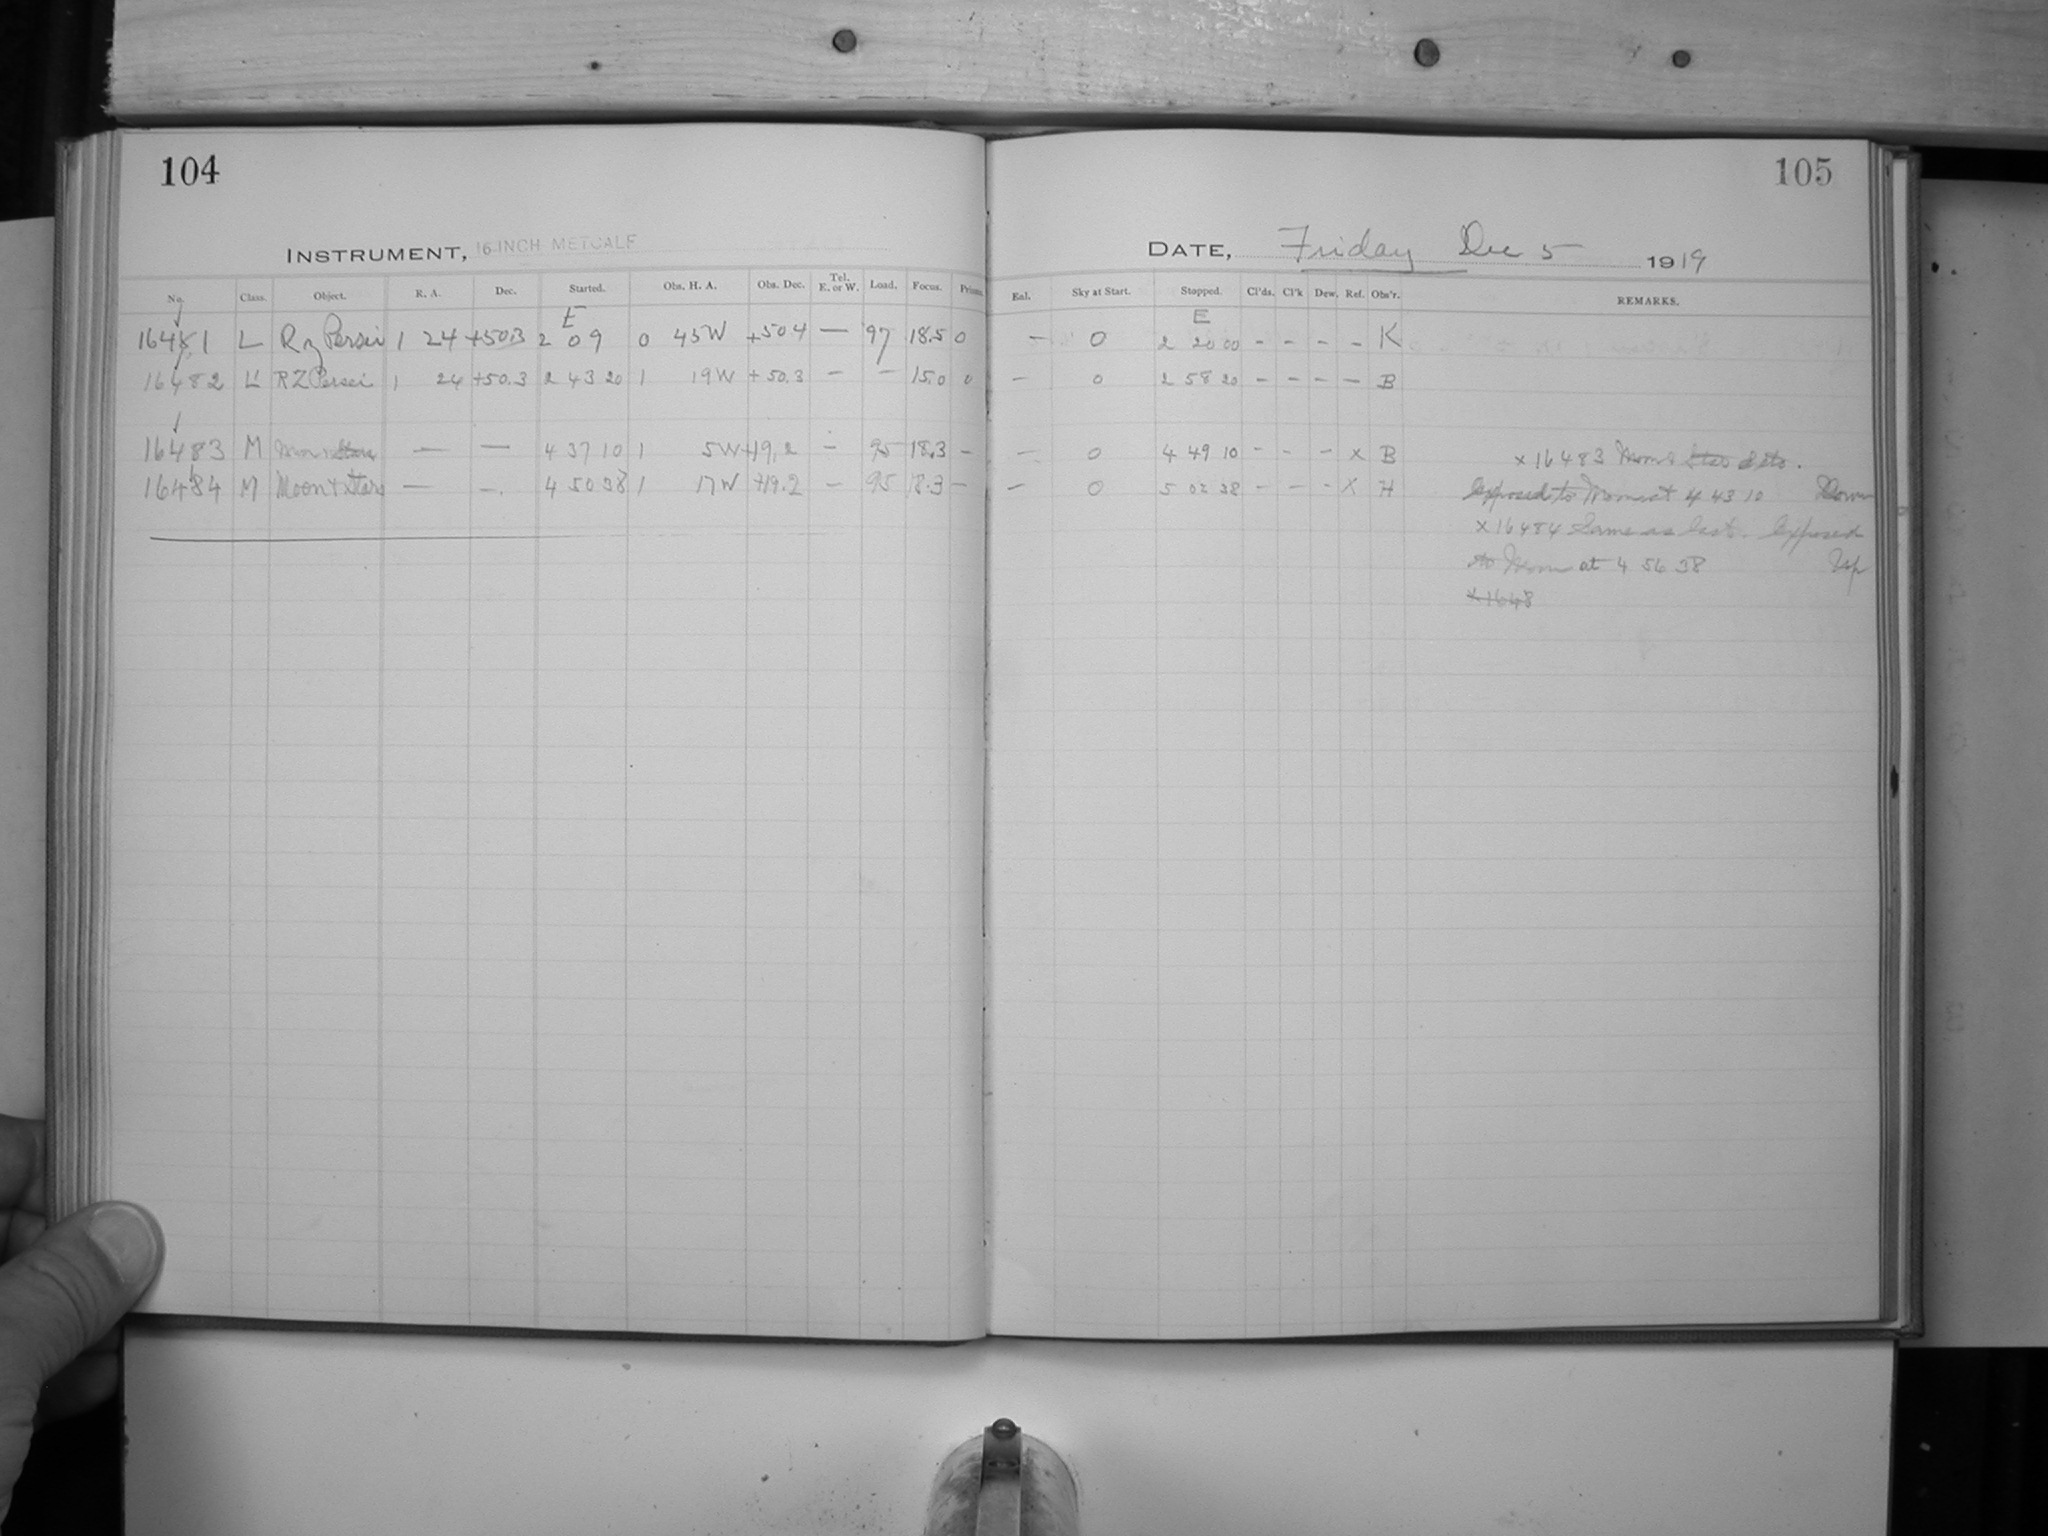 104
INSTRUMENT, 16-INCH METCALF
No. Class. Object. R. A. Dec. Started. Obs. H. A. Obs. Dec. Tel. E. or W. Load. Focus. Prisms.
E
16481 L RZ Persei 1 24 +50.3 2 09 0 45W +504 — 97 18.5 0
16482 L RZ Persei 1 24 +50.3 2 43 20 1 19W +50.3 — — 15.0 0
16483 M Moon & Stars — — 4 37 10 1 5W +19.2 – 95 18.3 –
16484 M Moon & Stars — —. 4 50 38 1 17W +19.2 – 95 18.3 –
105
DATE, Friday Dec 5 1919
Enl. Sky at Start. Stopped. Cl'ds. Cl'k Dew. Ref. Obs'r. REMARKS.
E
— 0 2 20 00 – – – – K
— 0 2 58 20 – – – — B
— 0 4 49 10 - - – x B x 16483 Moon & Star
– 0 5 02 38 – – - X H Exposed to Moon at 4 43 10 Down
x 16484 Same as last. Exposed
to Moon at 4 56 38 Up
x 1648